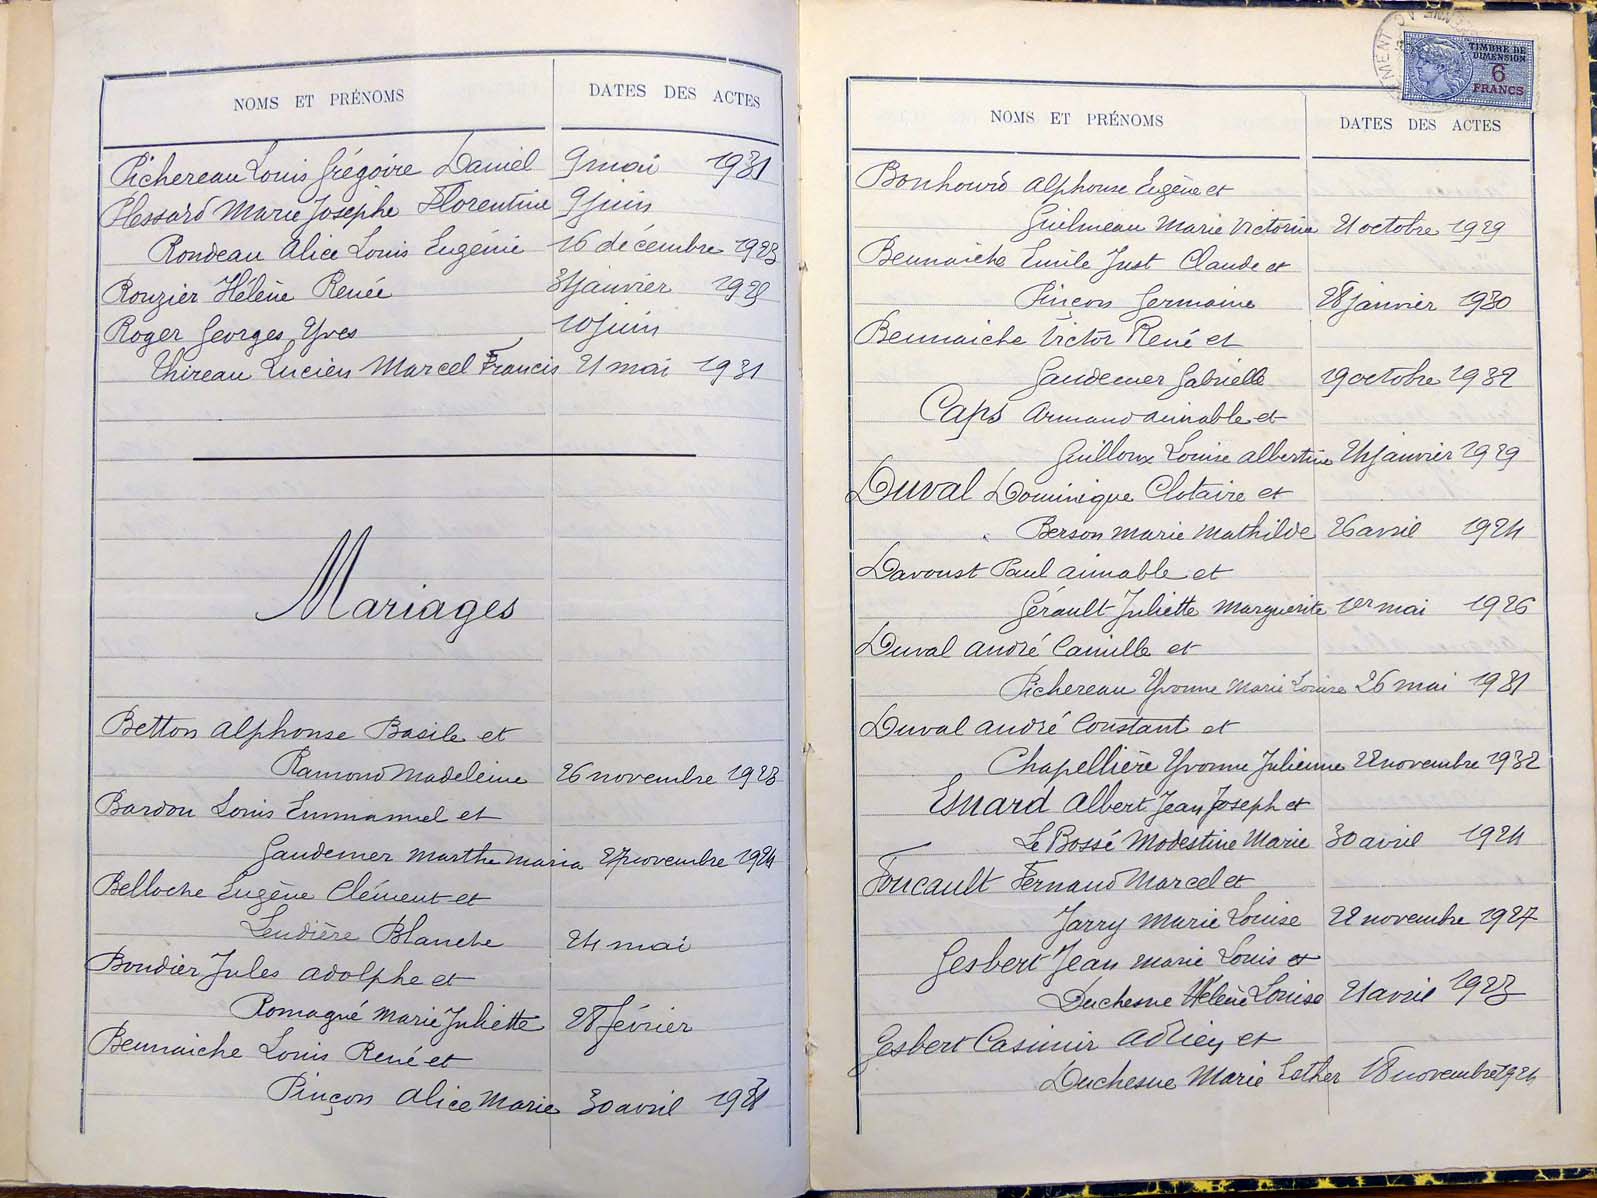 NOMS ET PRÉNOMS DATES DES ACTES
Pichereau Louis Grégoire Daniel 9 mai 1931
Plessard Marie Josephe Florentine 9 juin
Rondeau Alice Louis Eugénie 16 décembre 1923
Rouzier Hélène Renée 31 janvier 1928
Roger Georges Yves 10 juin
Thireau Lucien Marcel Francis 21 mai 1931
Mariages
Betton Alphonse Basile et
Ramond Madeleine 26 novembre 1923
Bardou Louis Emmanuel et
Gaudemer Marthe Maria 27 novembre 1924
Belloche Eugène Clément et
Lendière Blanche 24 mai
Boudier Jules Adolphe et
Romagné Marie Juliette 28 février
Beunaiche Louis René et
Pinçon Alice Marie 30 avril
TIMBRE DE DIMENSION
6 FRANCS
NOMS ET PRÉNOMS DATES DES ACTES
Bonhourd Alphonse Eugène et
Guilmeau Marie Victorine 21 octobre 1929
Beunaiche Emile Just Claude et
Pinçon Germaine 28 janvier 1930
Beunaiche Victor René et
Gaudemer Gabrielle 19 octobre 1932
Caps Armand Aimable et
Guilloux Louise Albertine 24 janvier 1929
Duval Dominique Clotaire et
Berson Marie Mathilde 26 avril 1924
Davoust Paul Aimable et
Gérault Juliette Marguerite 1er mai 1926
Duval André Camille et
Pichereau Yvonne Marie Louise 26 mai 1931
Duval André Constant et
Chapellière Yvonne Julienne 22 novembre 1932
Esnard Albert Jean Joseph et
Le Bossé Modestine Marie 30 avril 1924
Foucault Fernand Marcel et
Jarry Marie Louise 22 novembre 1927
Gesbert Jean Marie Louis et
Duchesne Hélène Louise 21 avril 1923
Gesbert Casimir Adrien et
Duchesne Marie Esther 18 novembre 1924